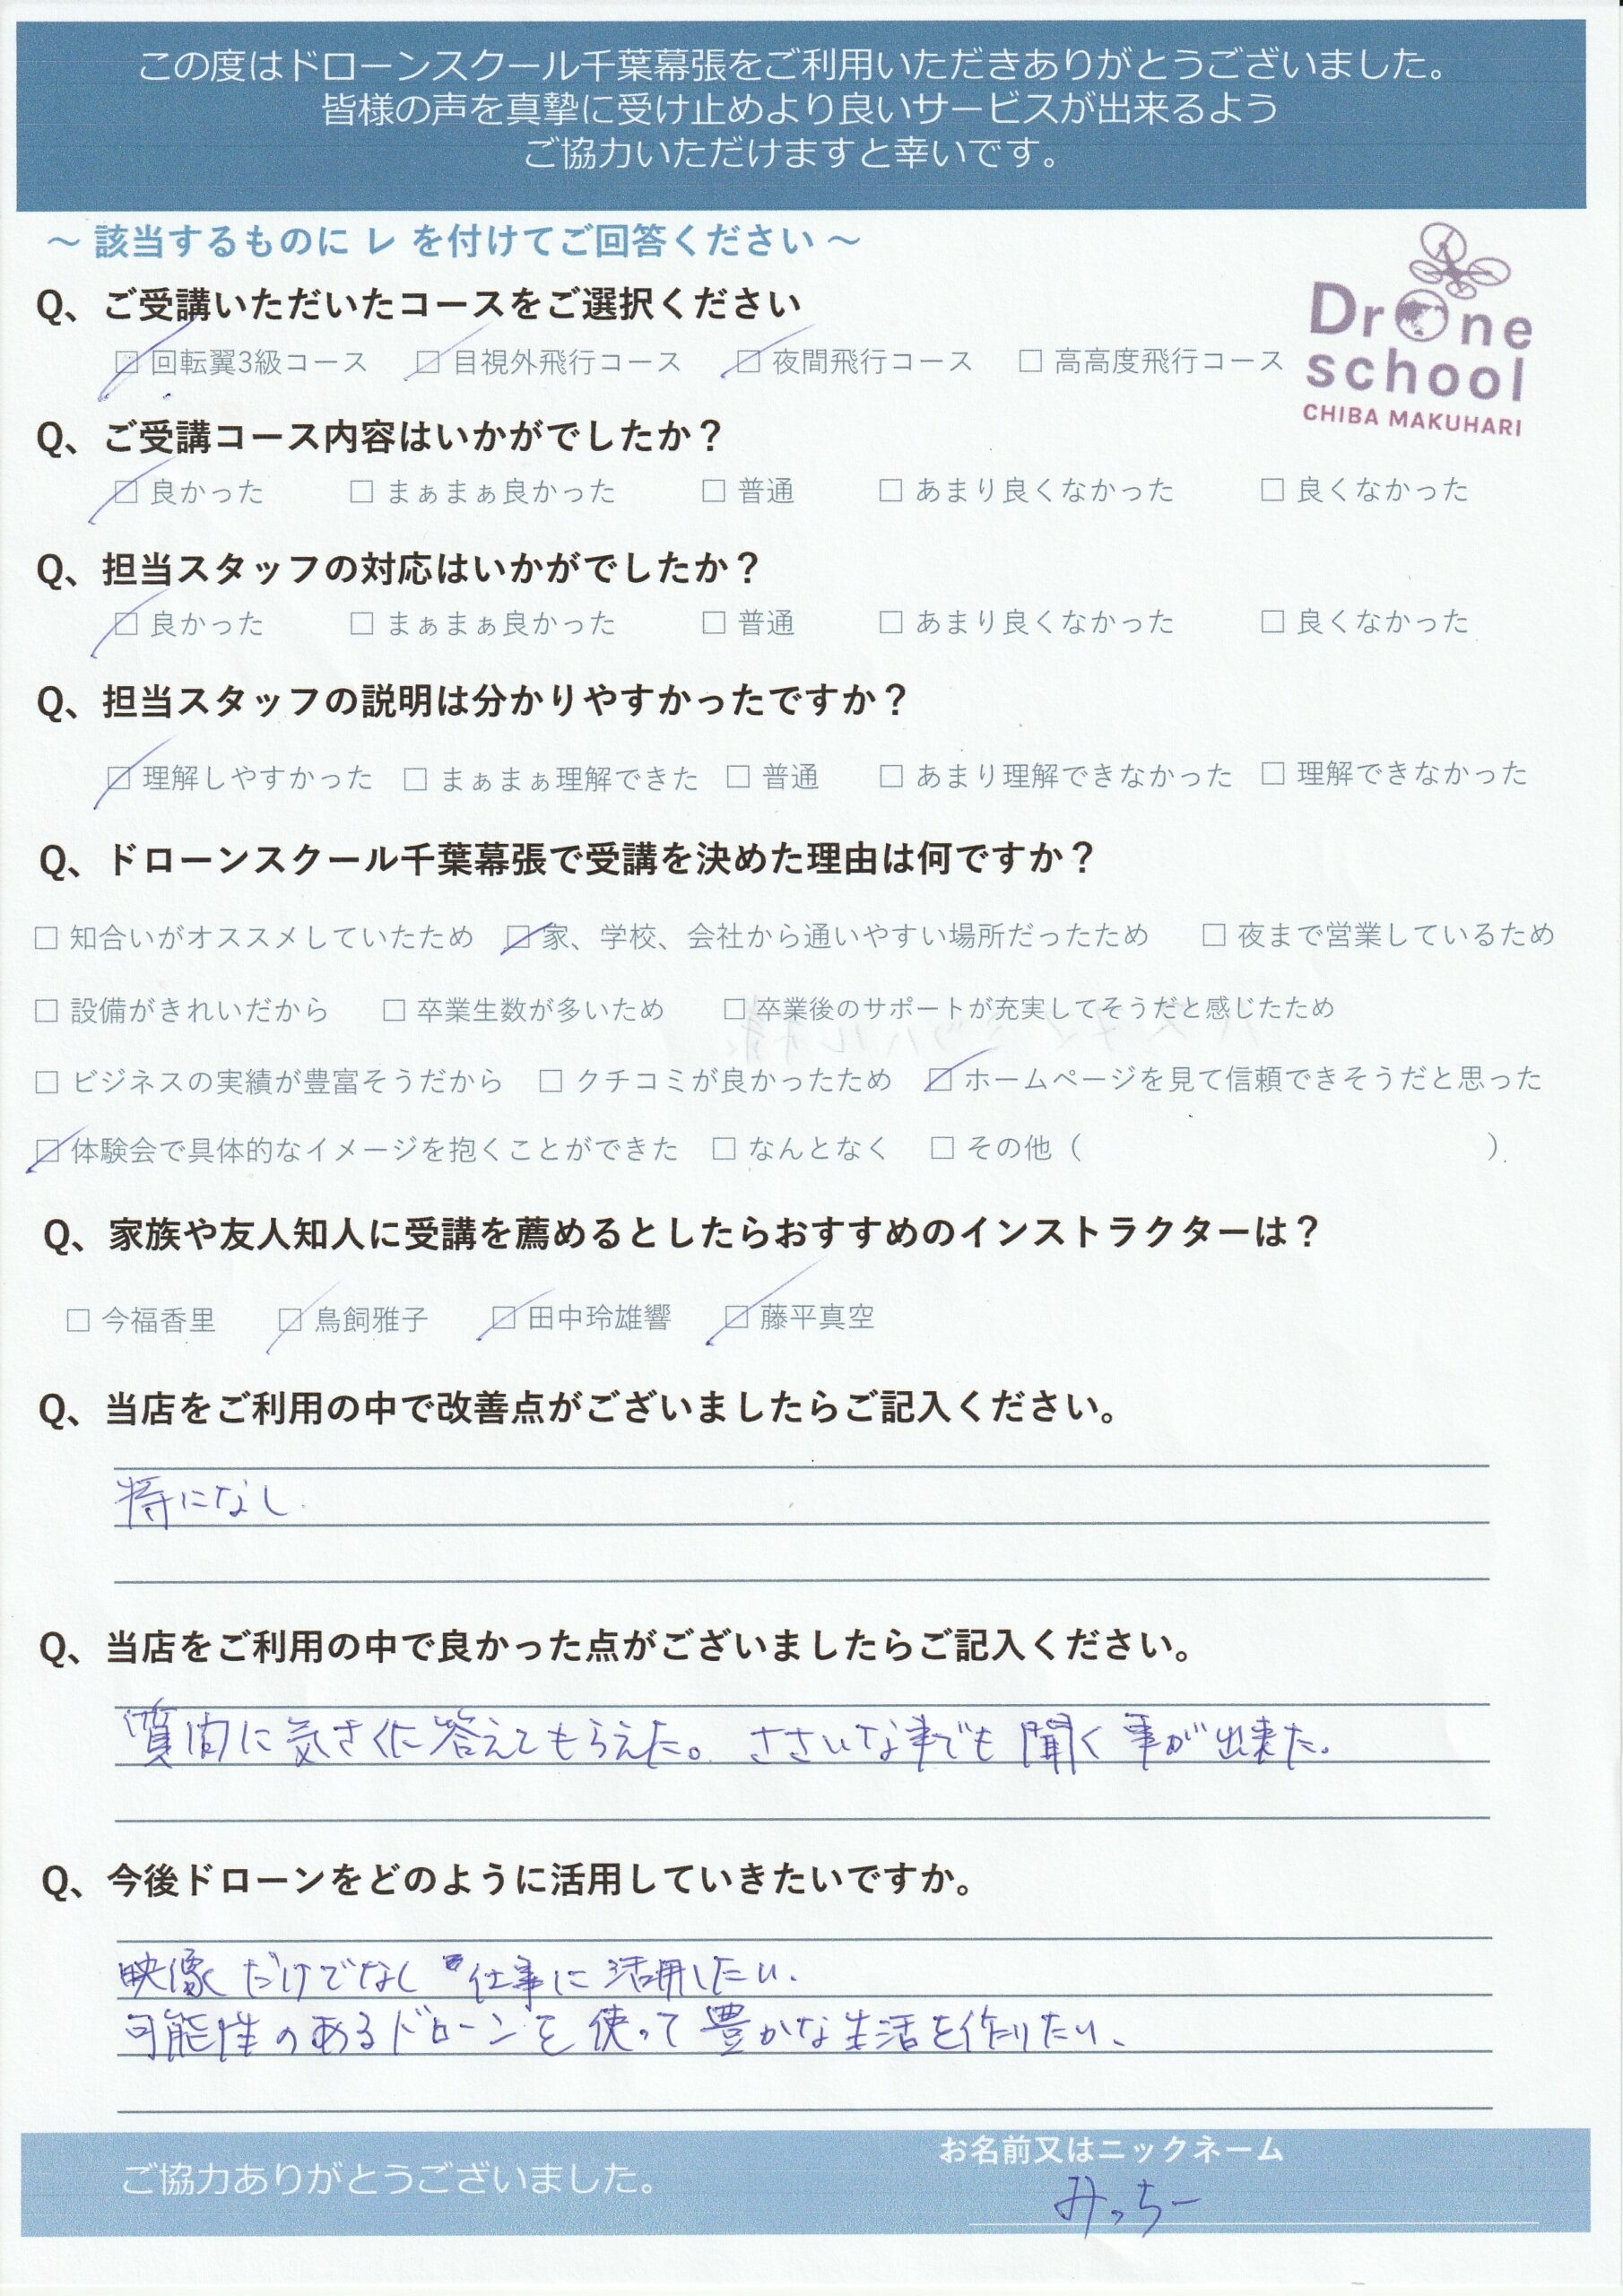 この度はドローンスクール千葉幕張をご利用いただきありがとうございました。
皆様の声を真摯に受け止めより良いサービスが出来るよう
ご協力いただけますと幸いです。
～ 該当するものに レ を付けてご回答ください ～
Drone
school
CHIBA MAKUHARI
Q、ご受講いただいたコースをご選択ください
☑ 回転翼3級コース ☑ 目視外飛行コース ☑ 夜間飛行コース □ 高高度飛行コース
Q、ご受講コース内容はいかがでしたか？
☑ 良かった □ まぁまぁ良かった □ 普通 □ あまり良くなかった □ 良くなかった
Q、担当スタッフの対応はいかがでしたか？
☑ 良かった □ まぁまぁ良かった □ 普通 □ あまり良くなかった □ 良くなかった
Q、担当スタッフの説明は分かりやすかったですか？
☑ 理解しやすかった □ まぁまぁ理解できた □ 普通 □ あまり理解できなかった □ 理解できなかった
Q、ドローンスクール千葉幕張で受講を決めた理由は何ですか？
□ 知合いがオススメしていたため ☑ 家、学校、会社から通いやすい場所だったため □ 夜まで営業しているため
□ 設備がきれいだから □ 卒業生数が多いため □ 卒業後のサポートが充実してそうだと感じたため
□ ビジネスの実績が豊富そうだから □ クチコミが良かったため ☑ ホームページを見て信頼できそうだと思った
☑ 体験会で具体的なイメージを抱くことができた □ なんとなく □ その他（ ）
Q、家族や友人知人に受講を薦めるとしたらおすすめのインストラクターは？
□ 今福香里 ☑ 鳥飼雅子 ☑ 田中玲雄響 ☑ 藤平真空
Q、当店をご利用の中で改善点がございましたらご記入ください。
特になし
Q、当店をご利用の中で良かった点がございましたらご記入ください。
質問に気さくに答えてもらえた。ささいな事でも聞く事が出来た。
Q、今後ドローンをどのように活用していきたいですか。
映像だけでなく 仕事に活用したい。
可能性のあるドローンを使って豊かな生活を作りたい、
ご協力ありがとうございました。
お名前又はニックネーム
みっちー